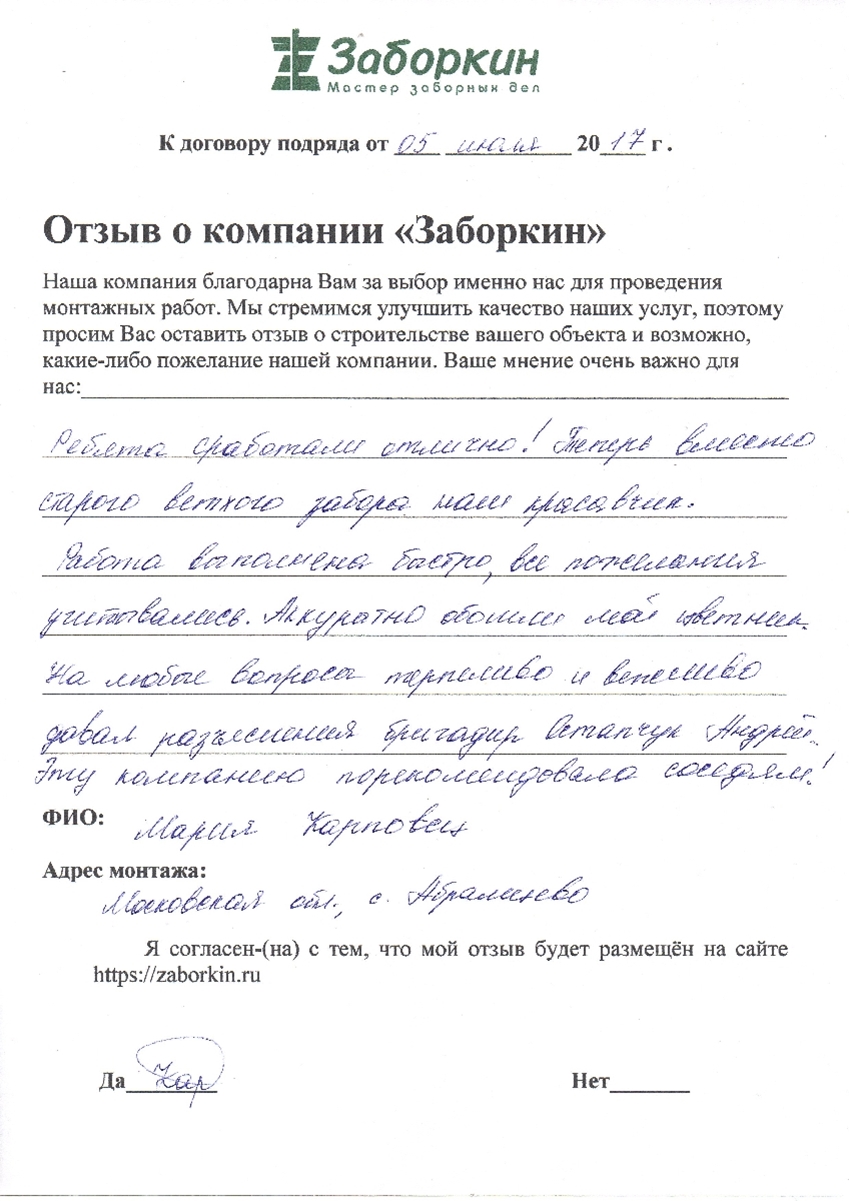 Заборкин
Мастер заборных дел
К договору подряда от 05 июля 2017 г .
Отзыв о компании «Заборкин»
Наша компания благодарна Вам за выбор именно нас для проведения
монтажных работ. Мы стремимся улучшить качество наших услуг, поэтому
просим Вас оставить отзыв о строительстве вашего объекта и возможно,
какие-либо пожелание нашей компании. Ваше мнение очень важно для
нас:
Ребята сработали отлично! Теперь вместо
старого ветхого забора наш красавчик.
Работа выполнена быстро, все пожелания
учитывались. Аккуратно обошли мой цветник.
На любые вопросы терпеливо и вежливо
давал разъяснения бригадир Остапчук Андрей.
Эту компанию порекомендовала соседям!
ФИО: Мария Карповец
Адрес монтажа:
Московская обл., с. Абрамцево
Я согласен-(на) с тем, что мой отзыв будет размещён на сайте
https://zaborkin.ru
Да Кар Нет